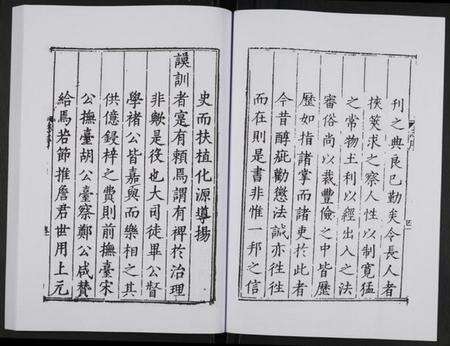 刊之典良已勤矣令長人者
挾筴求之察人性以制寬猛
之常物土利以經出入之法
審俗尚以裁豐儉之中皆歷
歷如指諸掌而諸吏於此者
今昔醇疵勸懲法誡亦徃徃
而在則是書非惟一邦之信
史而扶植化源導揚
謨訓者寔有頼焉謂有裨於治理
非歟是役也大司徒畢公督
學褚公皆嘉與而樂相之其
供億鋟梓之費則前撫臺宋
公撫臺胡公臺察鄭公咸賛
給焉若節推詹君世用上元